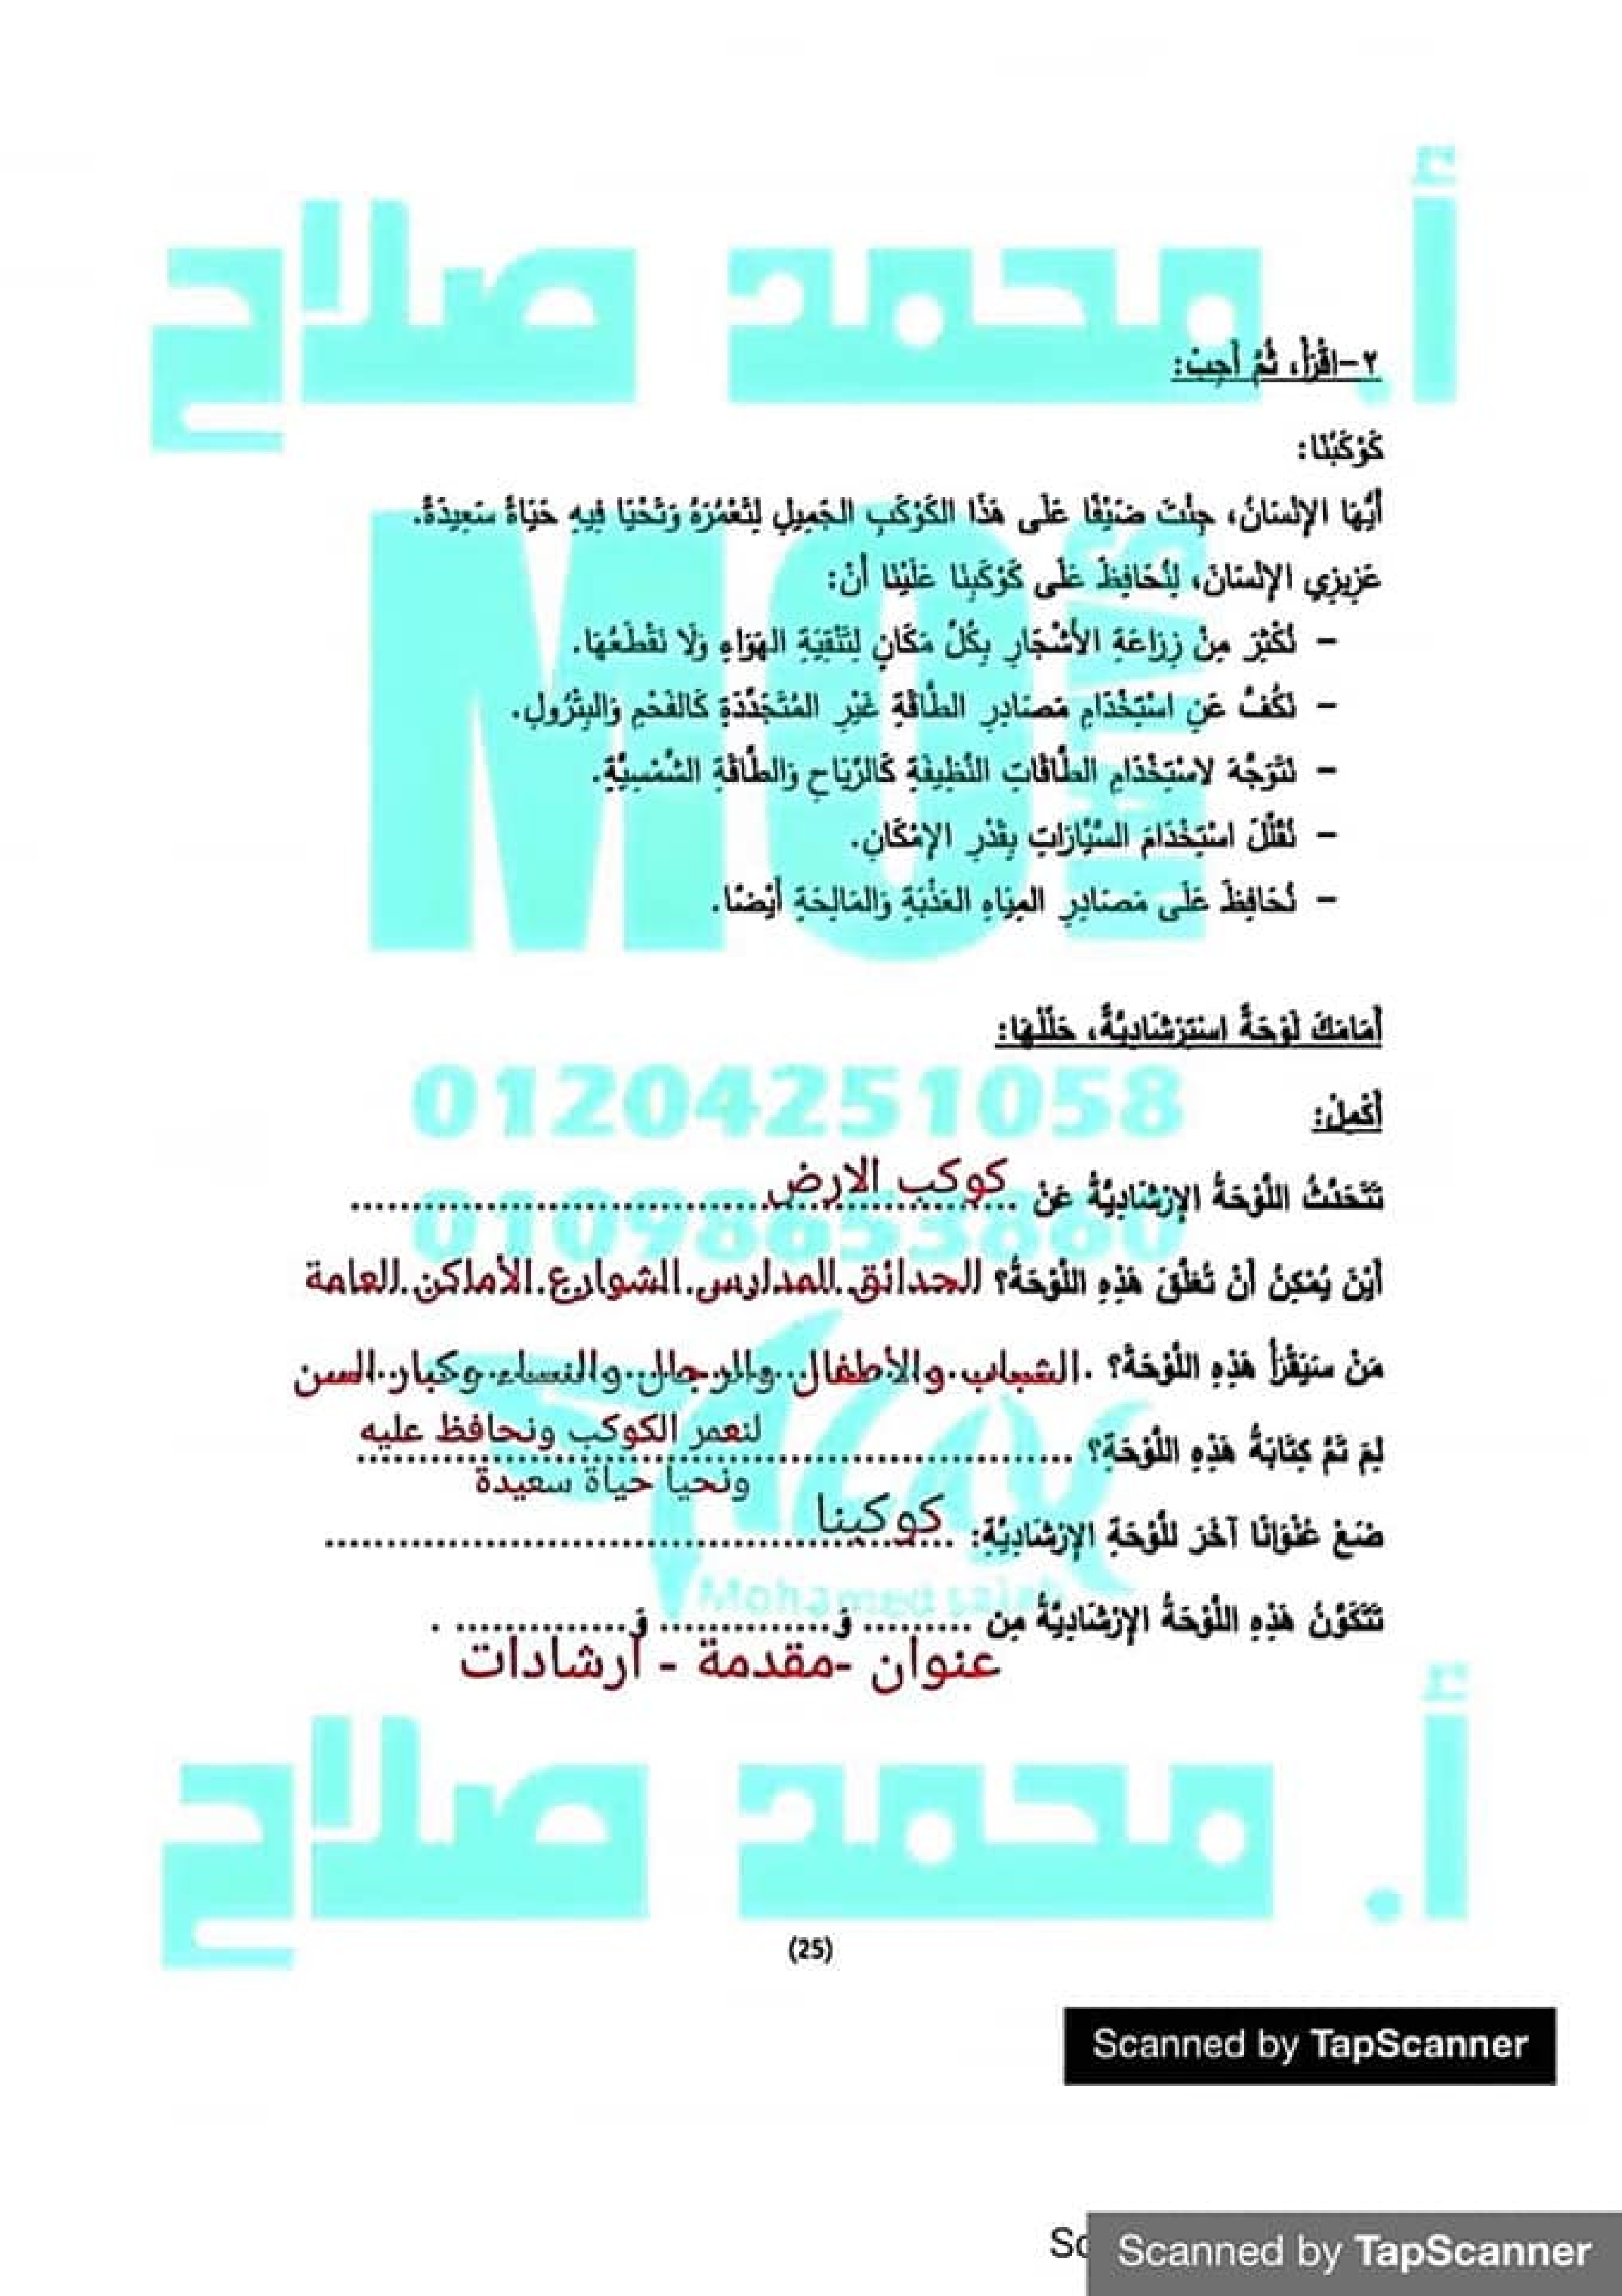 أ. محمد صلاح
٢-اقْرَأْ، ثُمَّ أَجِبْ:
كَوْكَبُنَا:
أَيُّهَا الإِنْسَانُ، جِئْتَ ضَيْفًا عَلَى هَذَا الكَوْكَبِ الجَمِيلِ لِتَعْمُرَهُ وَتَحْيَا فِيهِ حَيَاةً سَعِيدَةً.
عَزِيزِي الإِنْسَانَ، لِنُحَافِظَ عَلَى كَوْكَبِنَا عَلَيْنَا أَنْ:
- نُكْثِرَ مِنْ زِرَاعَةِ الأَشْجَارِ بِكُلِّ مَكَانٍ لِتَنْقِيَةِ الهَوَاءِ وَلَا نَقْطَعُهَا.
- نَكُفَّ عَنِ اسْتِخْدَامِ مَصَادِرِ الطَّاقَةِ غَيْرِ المُتَجَدِّدَةِ كَالفَحْمِ وَالبِتْرُولِ.
- نَتَوَجَّهَ لِاسْتِخْدَامِ الطَّاقَاتِ النَّظِيفَةِ كَالرِّيَاحِ وَالطَّاقَةِ الشَّمْسِيَّةِ.
- نُقَلِّلَ اسْتِخْدَامَ السَّيَّارَاتِ بِقَدْرِ الإِمْكَانِ.
- نُحَافِظَ عَلَى مَصَادِرِ المِيَاهِ العَذْبَةِ وَالمَالِحَةِ أَيْضًا.
MO
أَمَامَكَ لَوْحَةٌ اسْتِرْشَادِيَّةٌ، حَلِّلْهَا:
01204251058
أَكْمِلْ:
تَتَحَدَّثُ اللَّوْحَةُ الإِرْشَادِيَّةُ عَنْ كوكب الارض
01098653860
أَيْنَ يُمْكِنُ أَنْ تُعَلَّقَ هَذِهِ اللَّوْحَةُ؟ الحدائق..المدارس.الشوارع.الأماكن.العامة
مَنْ سَيَقْرَأُ هَذِهِ اللَّوْحَةَ؟ الشباب والأطفال والرجال والنساء وكبار السن
لِمَ تَمَّ كِتَابَةُ هَذِهِ اللَّوْحَةِ؟ لنعمر الكوكب ونحافظ عليه
ونحيا حياة سعيدة
ضَعْ عُنْوَانًا آخَرَ لِلَّوْحَةِ الإِرْشَادِيَّةِ: كوكبنا
Mohamed salah
تَتَكَوَّنُ هَذِهِ اللَّوْحَةُ الإِرْشَادِيَّةُ مِن ......... وَ.............. وَ.............. .
عنوان -مقدمة - ارشادات
أ. محمد صلاح
(25)
Scanned by TapScanner
Sc
Scanned by TapScanner